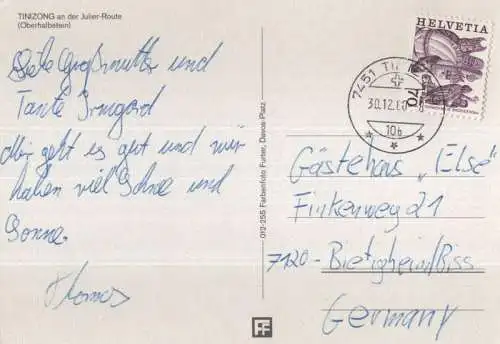 TINIZONG an der Julier-Route
(Oberhalbstein)
Liebe Großmutter und
Tante Irmgard
Mir geht es gut und wir
haben viel Schnee und
Sonne.
Thomas
012-255 Farbenfoto Furter, Davos-Platz
HELVETIA
70
7451 TI
30.12.
10b
Gästehaus "Else"
Finkenweg 21
7120-Bietigheim/Biss
Germany